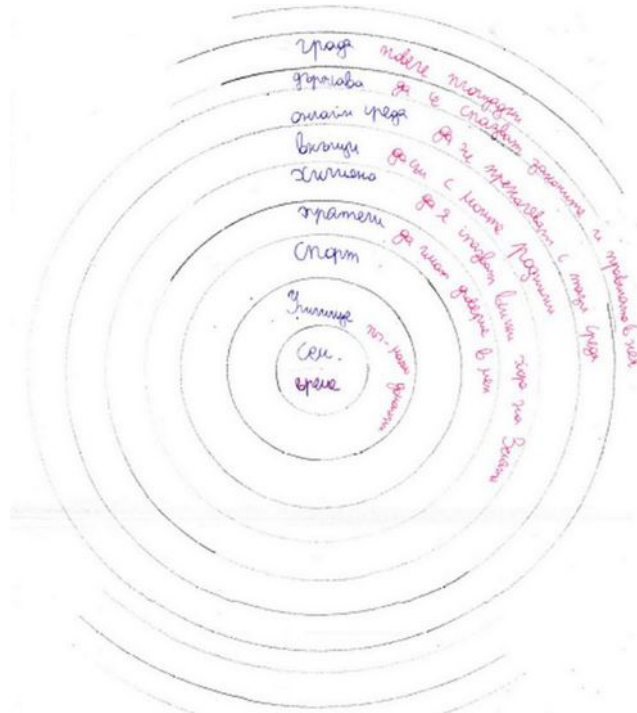 града повече площадки
държава да се спазват законите и правилата в нея
онлайн среда да не прекаляват с тази среда
вкъщи да съм с моите роднини
хигиена да я спазват всички хора на Земята
приятели да имат доверие в мен
спорт
Училище по-малко домашни
сем.
време